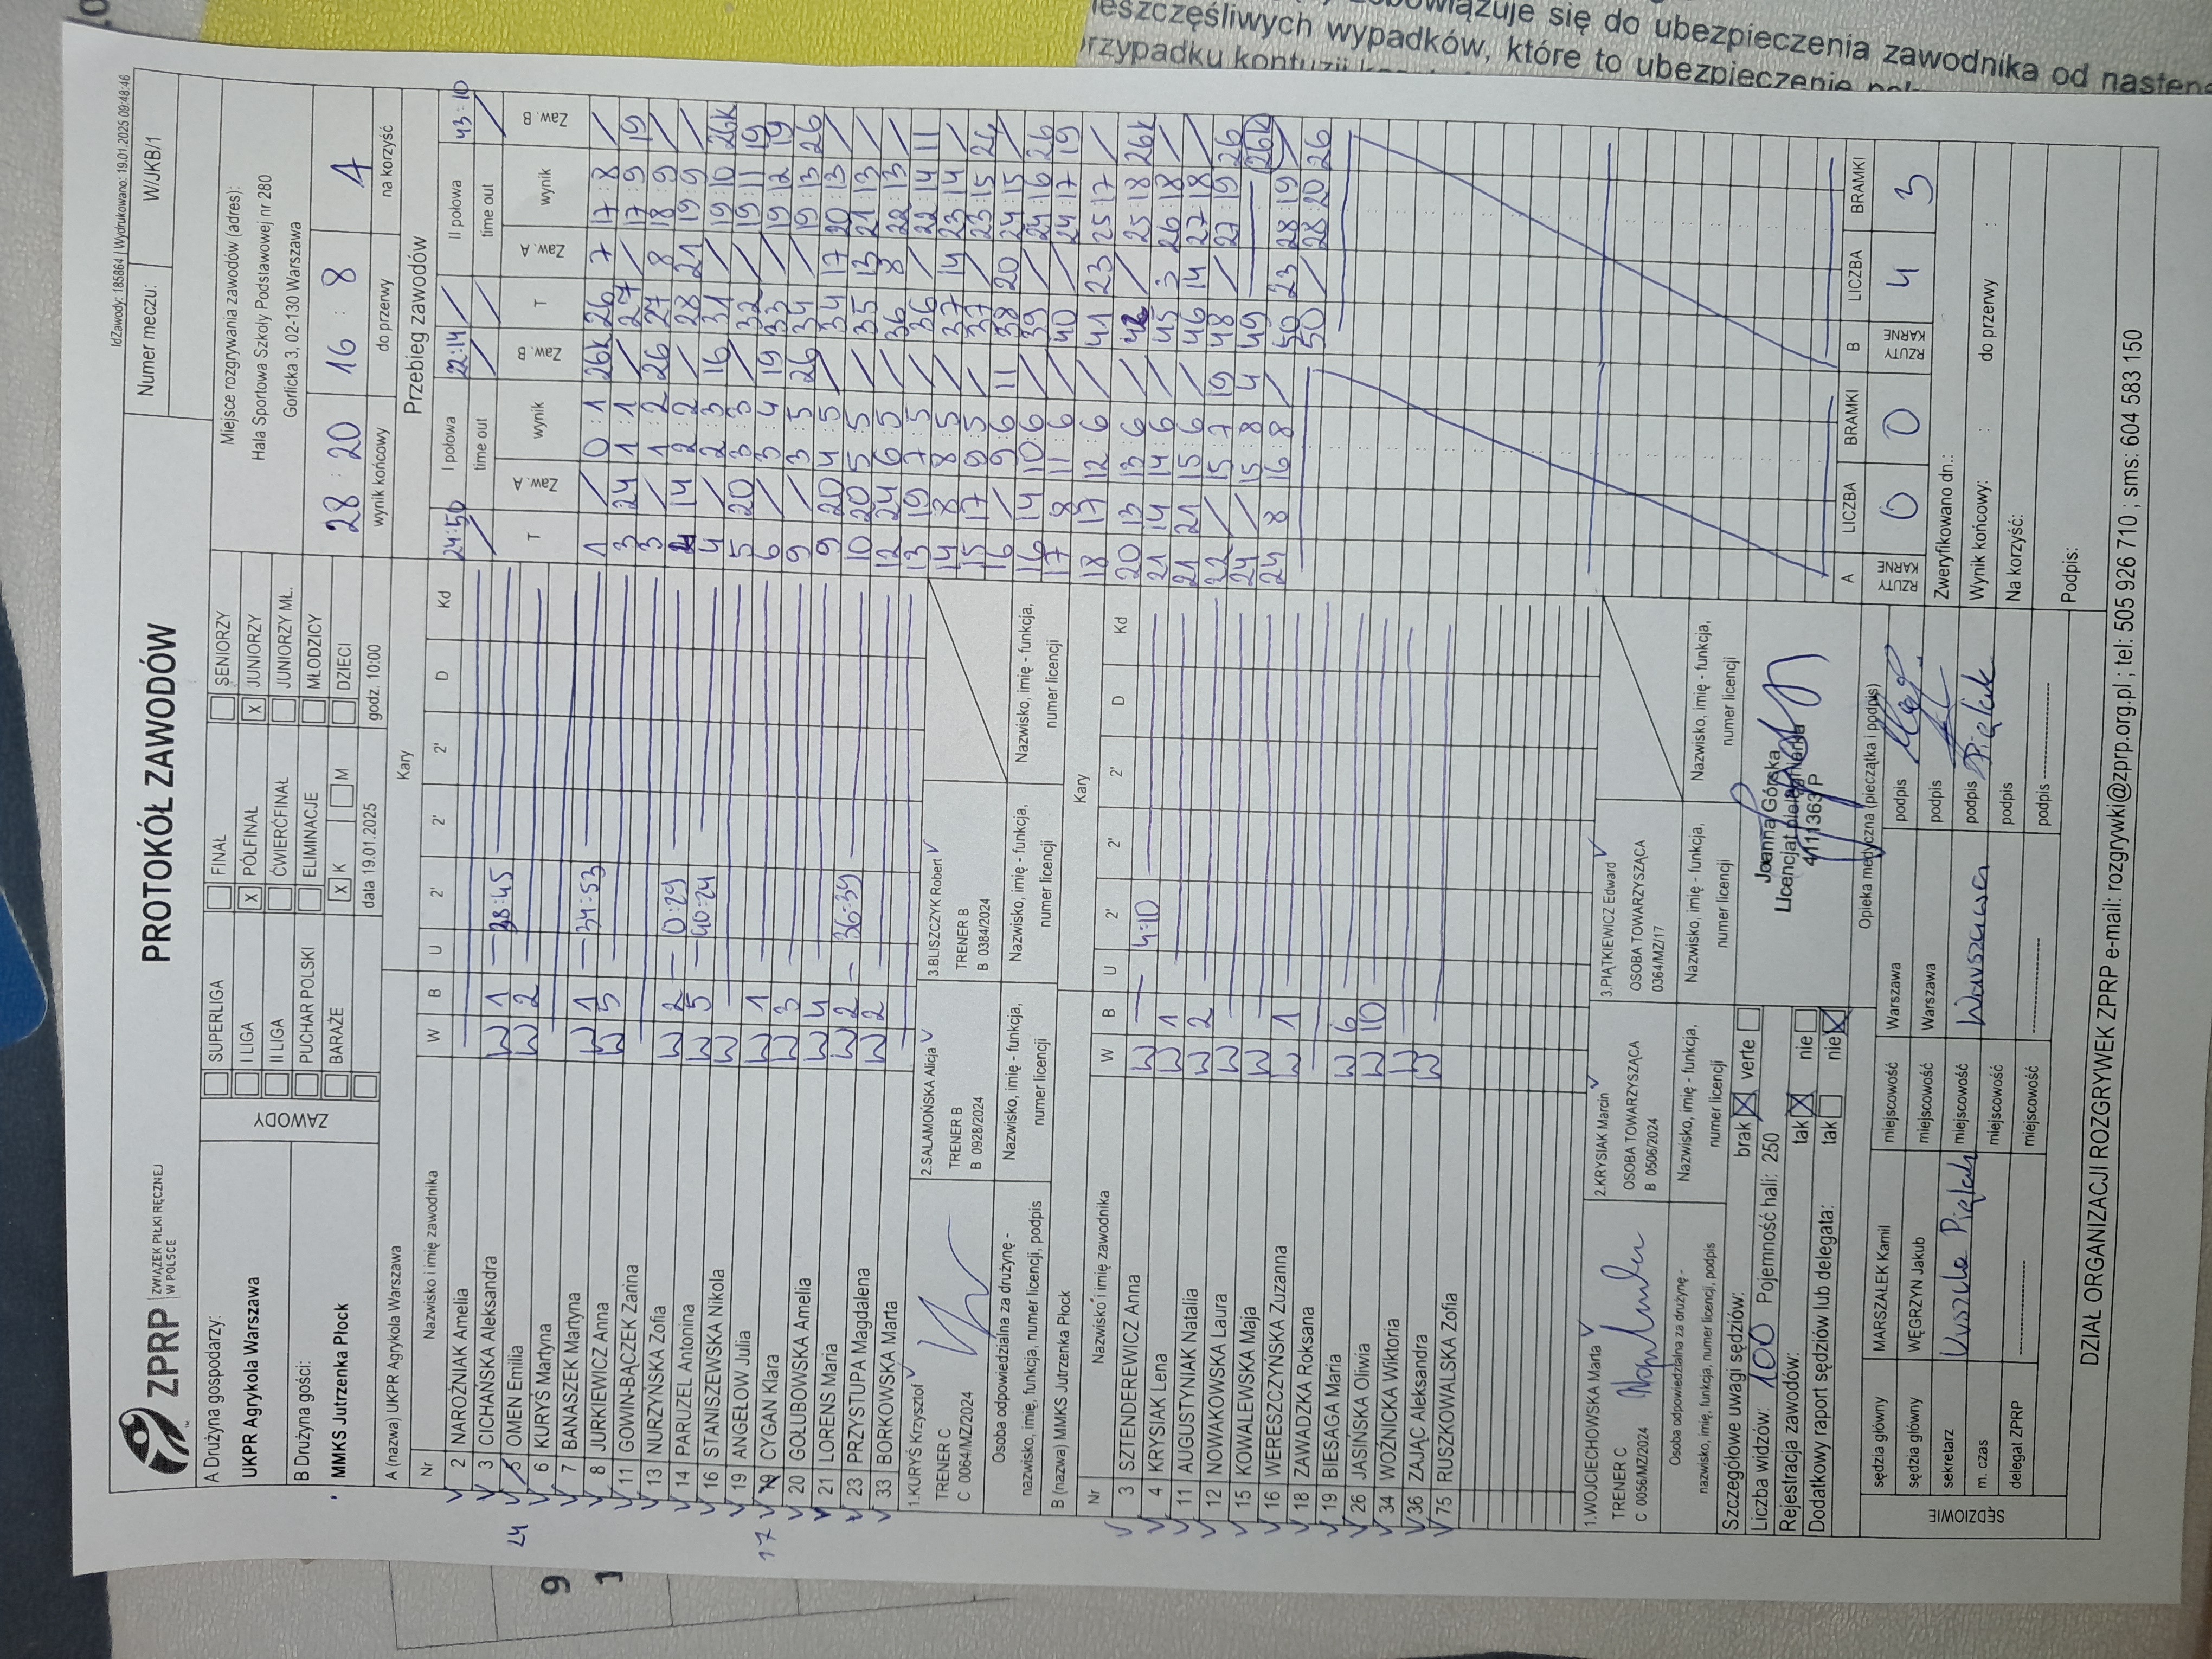 IdZawody: 185864 | Wydrukowano: 19.01.2025 09:48:46
ZPRP ZWIĄZEK PIŁKI RĘCZNEJ W POLSCE
PROTOKÓŁ ZAWODÓW
Numer meczu: W/JKB/1
A Drużyna gospodarzy:
UKPR Agrykola Warszawa
B Drużyna gości:
MMKS Jutrzenka Płock
ZAWODY
SUPERLIGA
I LIGA
II LIGA
PUCHAR POLSKI
BARAŻE
FINAŁ
X PÓŁFINAŁ
ĆWIERĆFINAŁ
ELIMINACJE
X K M
SENIORZY
X JUNIORZY
JUNIORZY MŁ.
MŁODZICY
DZIECI
data 19.01.2025 godz. 10:00
Miejsce rozgrywania zawodów (adres):
Hala Sportowa Szkoły Podstawowej nr 280
Gorlicka 3, 02-130 Warszawa
28 : 20 16 : 8 A
wynik końcowy do przerwy na korzyść
A (nazwa) UKPR Agrykola Warszawa Kary
Nr Nazwisko i imię zawodnika W B U 2' 2' 2' D Kd
2 NAROŻNIAK Amelia
3 CICHAŃSKA Aleksandra W 1 38:45
24 5 OMEN Emilia W 2
6 KURYŚ Martyna
7 BANASZEK Martyna W 1 34:53
8 JURKIEWICZ Anna W 5
11 GOWIN-BĄCZEK Zarina
13 NURZYŃSKA Zofia W 2 0:29
14 PARUZEL Antonina W 5 40:24
16 STANISZEWSKA Nikola W
19 ANGEŁOW Julia W 1
17 CYGAN Klara W 3
20 GOŁUBOWSKA Amelia W 4
21 LORENS Maria W 2 36:39
23 PRZYSTUPA Magdalena W 2
33 BORKOWSKA Marta
1.KURYŚ Krzysztof
TRENER C
C 0064/MZ/2024
2.SALAMOŃSKA Alicja
TRENER B
B 0928/2024
3.BLISZCZYK Robert
TRENER B
B 0384/2024
Osoba odpowiedzialna za drużynę -
nazwisko, imię, funkcja, numer licencji, podpis
Nazwisko, imię - funkcja,
numer licencji
Nazwisko, imię - funkcja,
numer licencji
Nazwisko, imię - funkcja,
numer licencji
B (nazwa) MMKS Jutrzenka Płock Kary
Nr Nazwisko i imię zawodnika W B U 2' 2' 2' D Kd
3 SZTENDEREWICZ Anna W 4:10
4 KRYSIAK Lena W 1
11 AUGUSTYNIAK Natalia W 2
12 NOWAKOWSKA Laura W
15 KOWALEWSKA Maja W
16 WERESZCZYŃSKA Zuzanna W 1
18 ZAWADZKA Roksana
19 BIESAGA Maria W 6
26 JASIŃSKA Oliwia W 10
34 WOŹNICKA Wiktoria
36 ZAJĄC Aleksandra W
75 RUSZKOWALSKA Zofia W
1.WOJCIECHOWSKA Marta
TRENER C
C 0056/MZ/2024
2.KRYSIAK Marcin
OSOBA TOWARZYSZĄCA
B 0506/2024
3.PIĄTKIEWICZ Edward
OSOBA TOWARZYSZĄCA
0364/MZ/17
Osoba odpowiedzialna za drużynę -
nazwisko, imię, funkcja, numer licencji, podpis
Nazwisko, imię - funkcja,
numer licencji
Nazwisko, imię - funkcja,
numer licencji
Nazwisko, imię - funkcja,
numer licencji
Szczegółowe uwagi sędziów: brak verte
Liczba widzów: 100 Pojemność hali: 250
Rejestracja zawodów: tak nie
Dodatkowy raport sędziów lub delegata: tak nie
Joanna Górska
Licencjat pielęgniarka
4111363 P
Opieka medyczna (pieczątka i podpis)
SĘDZIOWIE
sędzia główny MARSZAŁEK Kamil miejscowość Warszawa podpis
sędzia główny WĘGRZYN Jakub miejscowość Warszawa podpis
sekretarz miejscowość Warszawa podpis
m. czas miejscowość podpis
delegat ZPRP miejscowość podpis
Przebieg zawodów
24:50 I połowa 22:14
time out
II połowa 43:10
time out
T Zaw. A wynik Zaw. B
1 / 0:1 26k
3 24 1:1 /
3 / 1:2 26
4 14 2:2 /
4 / 2:3 16
5 20 3:3 /
6 / 3:4 19
9 / 3:5 26
9 20 4:5 /
10 20 5:5 /
12 24 6:5 /
13 19 7:5 /
14 8 8:5 /
15 17 9:5 /
16 / 9:6 11
16 14 10:6 /
17 8 11:6 /
18 17 12:6 /
20 13 13:6 /
21 14 14:6 /
21 21 15:6 /
22 / 15:7 19
24 / 15:8 4
24 8 16:8 /
T Zaw. A wynik Zaw. B
26 7 17:8 /
27 / 17:9 19
27 8 18:9 /
28 21 19:9 /
31 / 19:10 26k
32 / 19:11 19
33 / 19:12 19
34 / 19:13 26
34 17 20:13 /
35 13 21:13 /
36 8 22:13 /
36 / 22:14 11
37 14 23:14 /
37 / 23:15 26
38 20 24:15 /
39 / 24:16 26
40 / 24:17 19
41 23 25:17 /
42 / 25:18 26k
45 3 26:18 /
46 14 27:18 /
48 / 27:19 26
49 — 26k
50 23 28:19 /
50 / 28:20 26
A LICZBA BRAMKI B LICZBA BRAMKI
RZUTY KARNE 0 0 RZUTY KARNE 4 3
Zweryfikowano dn.:
Wynik końcowy: : do przerwy :
Na korzyść:
Podpis:
DZIAŁ ORGANIZACJI ROZGRYWEK ZPRP e-mail: rozgrywki@zprp.org.pl ; tel: 505 926 710 ; sms: 604 583 150
uje się do ubezpieczenia zawodnika od
wypadków, które to ubezpieczenie